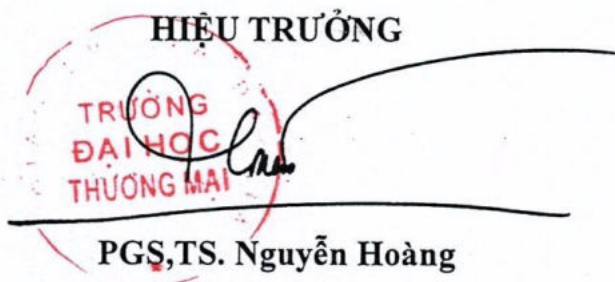 HIỆU TRƯỞNG
TRƯỜNG
ĐẠI HỌC
THƯƠNG MẠI
PGS,TS. Nguyễn Hoàng